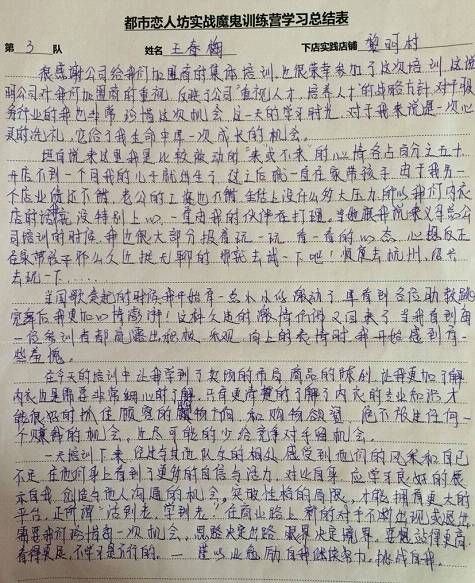 都市恋人坊实战魔鬼训练营学习总结表
第 3 队 姓名 王春梅 下店实践店铺 黎明村
很感谢公司给我们加盟商的集体培训，也很荣幸参加了这次培训，这说
明公司对我们加盟商的重视，反映了公司"重视人才，培养人才"的战略方针，对于服
务行业的我也非常珍惜这次机会，这一天的学习时光，对于我来说是一次心
灵的洗礼，它给了我生命中再一次成长的机会。
坦白说来这里我是比较被动的"来或不来"的心情各占百分之五十，
开店不到一个月我的儿子就出生了，过之后就一直在家带孩子，由于我另一
个店业绩还不错，老公的工资也不错，生活上没什么多大压力，所以我们内衣
店的情况没特别上心，一直由我的伙伴在打理。当她跟我说来义乌总公
司培训的时候，我也很大部分报着玩一玩，看一看的心态，心想反正
在家带孩子那么久也挺无聊的，那就去试一下吧！顺便去杭州
去玩一下……
当国歌奏起的时候我开始有一点小小的激动了，再看到各位助教跳
完舞后我更加心情澎湃！这种久违的激情仿佛又回来了，当我看到每
一位参训者都流露出积极、乐观、向上的表情时，我开始感到有一
些羞愧。
在今天的培训中让我学到了卖场的布局，商品的陈列，让我更加了解
内衣也是需要非常细心的了解，只有更清楚的了解了内衣的专业知识，才
能很好的抓住顾客的购物方向，和购物欲望，绝不放过任何一
个赚钱的机会，也尽可能的少给竞争对手留机会。
一天培训下来，经过与其他队友的相处，感受到他们的风采和自己
不足，在他们身上看到了更多的自信与活力，对业自身，应学习良好的展
示自我，创造与他人沟通的机会，突破性格的局限，才能拥有更大的
平台，正所谓"活到老，学到老"，在商业路上新的对手不断出现或退出
需要我们珍惜每一次机会，思路决定出路，眼界决定境界，要想站得更高
看得更远，不学习是不行的。 以此勉励自我继续努力，挑战自我。